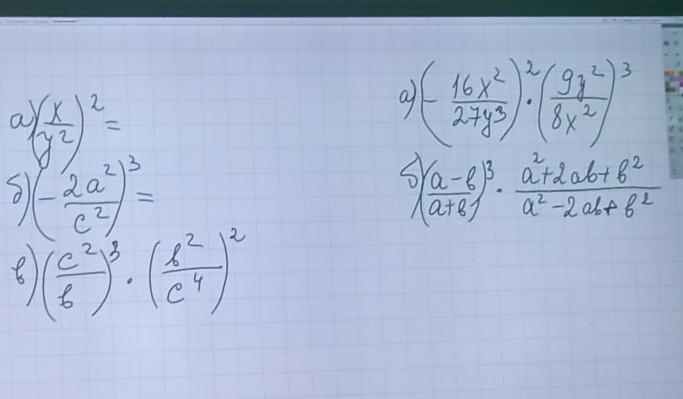 а) (x/y²)² =
б) (- 2a²/c²)³ =
в) (c²/b)³ · (b²/c⁴)²
а) (- 16x²/27y³)² · (9y²/8x²)³
б) ((a-b)/(a+b))³ · (a²+2ab+b²)/(a²-2ab+b²)